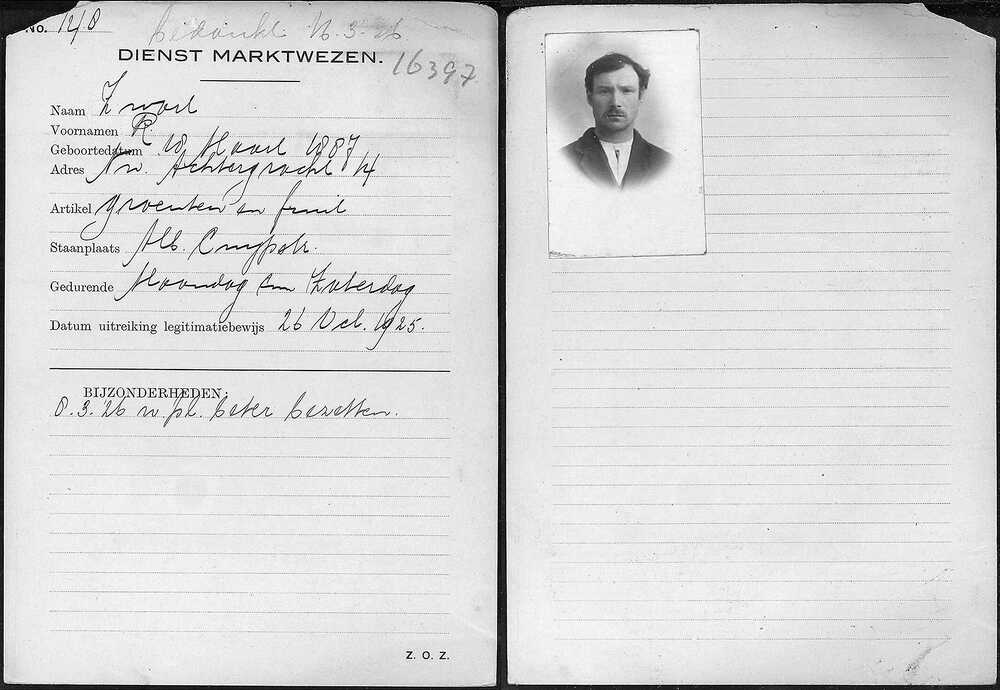 No. 1218
Bedankt 16.3.26
DIENST MARKTWEZEN.
16397
Naam
Voornamen R.
Geboortedatum 18 Maart 1887
Adres Nw. Achtergracht 14
Artikel groenten en fruit
Staanplaats Alb. Cuypstr.
Gedurende Maandag t/m Zaterdag
Datum uitreiking legitimatiebewijs 26 Oct. 1925.
BIJZONDERHEDEN:
8.3.'26 w pl. beter bezetten.
Z. O. Z.